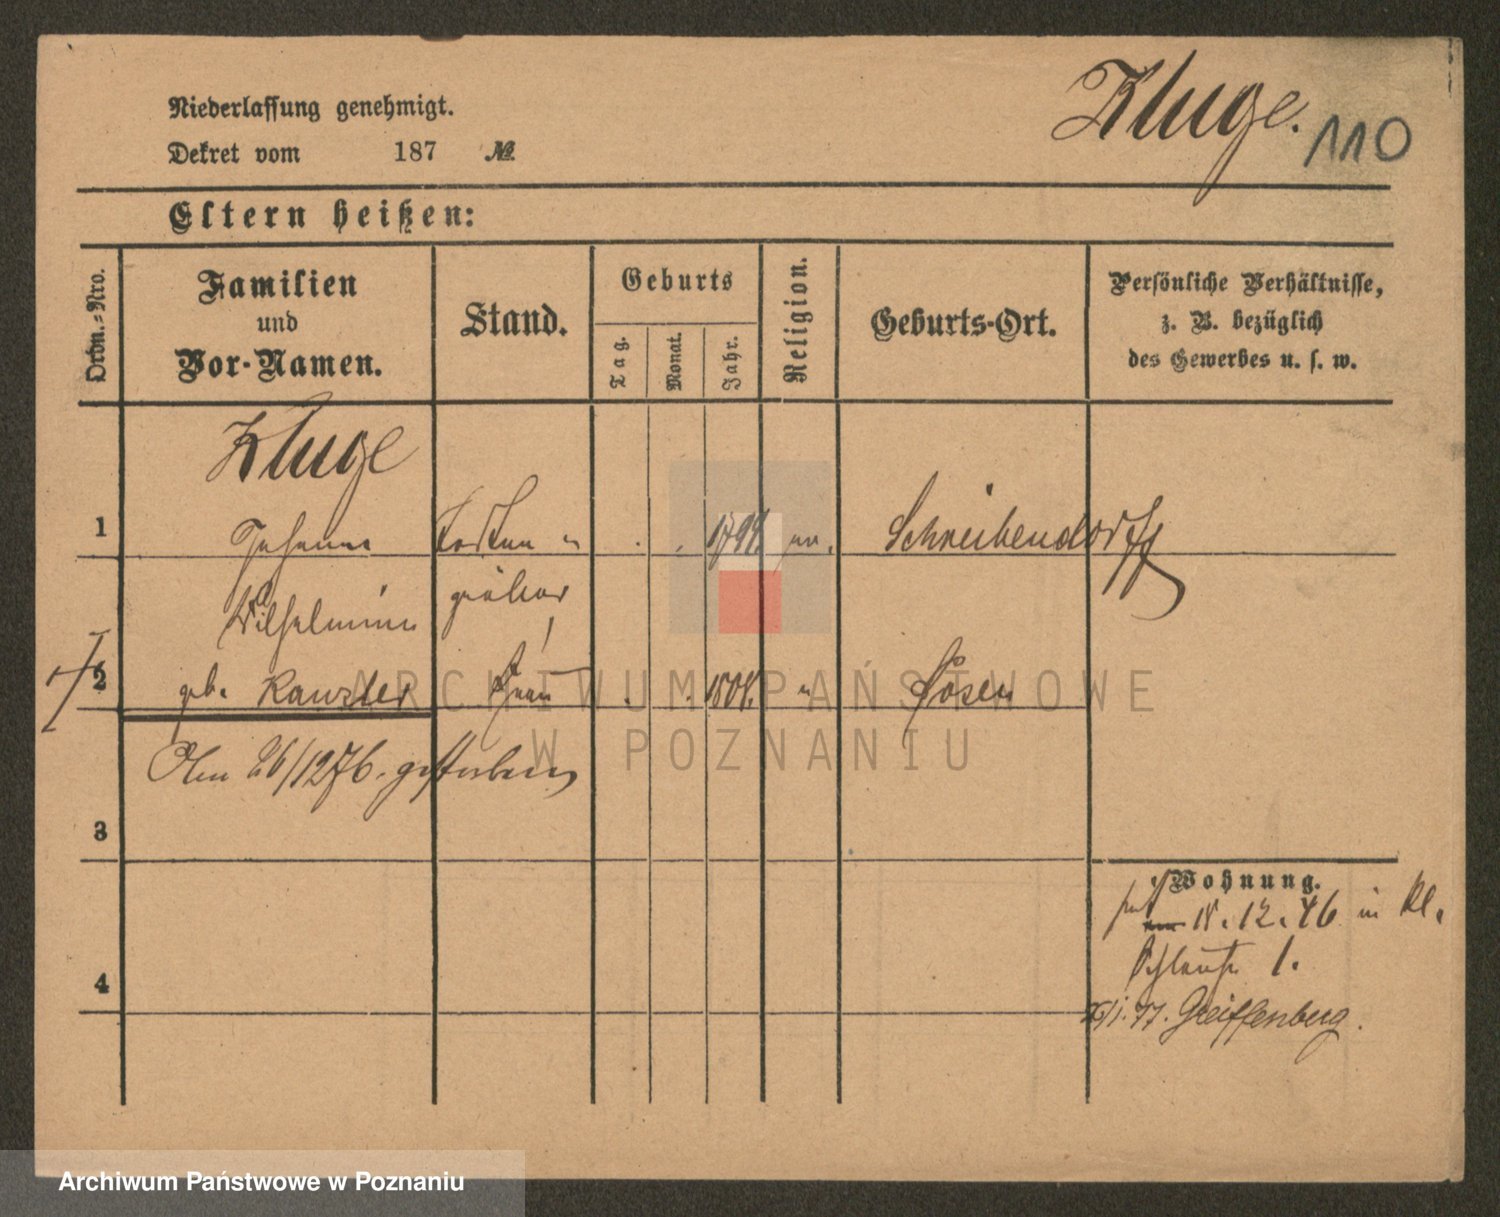 Kluge. 110
Niederlassung genehmigt.
Dekret vom 187 №
Eltern heißen:
Ordn.-Nro.
Familien
und
Vor-Namen.
Stand.
Geburts
Tag.
Monat.
Jahr.
Religion.
Geburts-Ort.
Persönliche Verhältnisse,
z. B. bezüglich
des Gewerbes u. s. w.
Kluge
1 Johann 1794. Schreibendorf
gräber
Wilhelmine
2 geb. Kanzler Frau 1804. " Posen
Am 26/12 76. gestorben
3
4
Wohnung.
12. 76 in Kl.
1.
1. 77. Greiffenberg.
ARCHIWUM PAŃSTWOWE
W POZNANIU
Archiwum Państwowe w Poznaniu